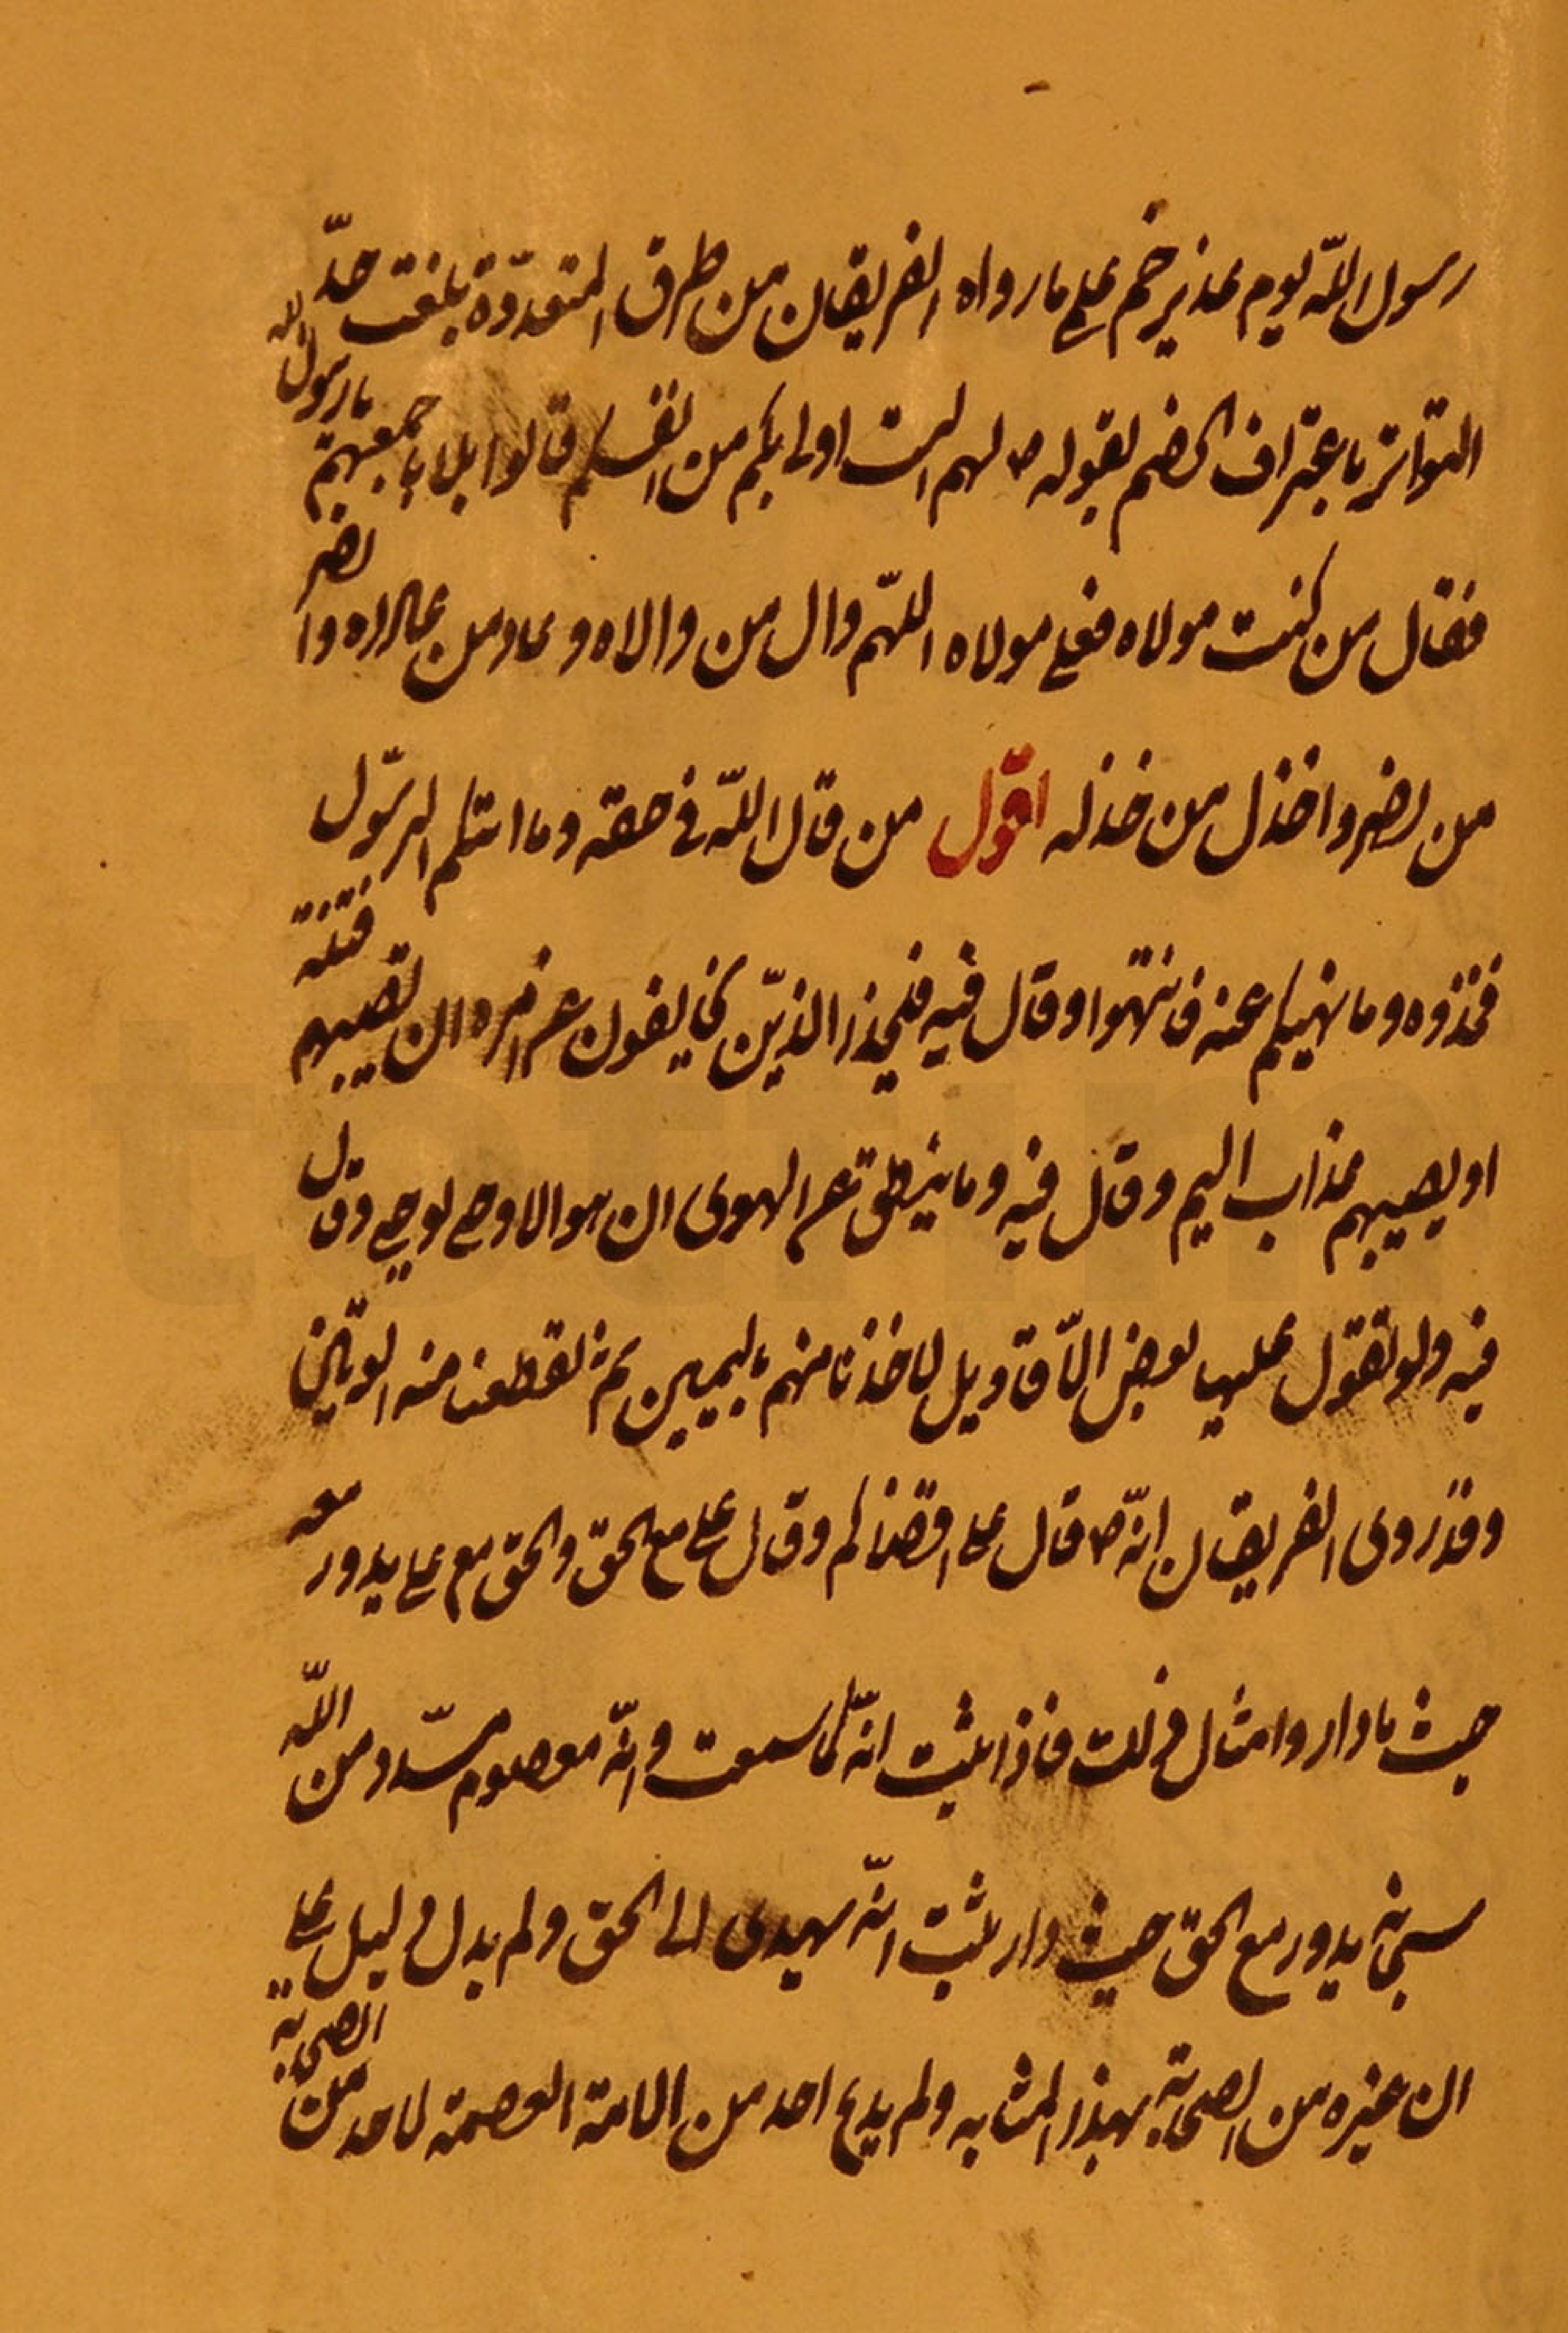 رسول اللّه يوم غدير خم على ما رواه الفريقان من طرق المتعدّدة بلغت حدّ
التواتر باعتراف الخصم بقوله ص لهم الست اولى بكم من انفسكم قالوا بلا باجمعهم يا رسول الله
فقال من كنت مولاه فعلى مولاه اللهّم وال من والاه و عاد من عاداه وا نصر
من نصره واخذل من خذله اقول من قال اللّه فى حقه وما اتيكم الرسّول
فخذوه وما نهيكم عنه فانتهوا وقال فيه فليحذر الذيّن يخالفون عن امره ان تصيبهم فتنة
او يصيبهم عذاب اليم وقال فيه وما ينطق عن الهوى ان هو الا وحى يوحى وقال
فيه ولو تقول علينا بعض الأقاويل لاخذنا منهم باليمين ثم لقطعنا منه الوتين
وقد روى الفريقان انّه ص قال على اقضاكم وقال على مع الحق والحق مع على يدور معه
حيث ما دار وامثال ذلك فاذا ثبت انّه كما سمعت وانّه معصوم مسدّد من اللّه
سبحانه يدور مع الحق حيث دار يثبت انّه يهدى الى الحق ولم يدل دليل على
ان غيره من الصحابة بهذا المثابه ولم يدع احد من الامة العصمة لاحد من الصحابة